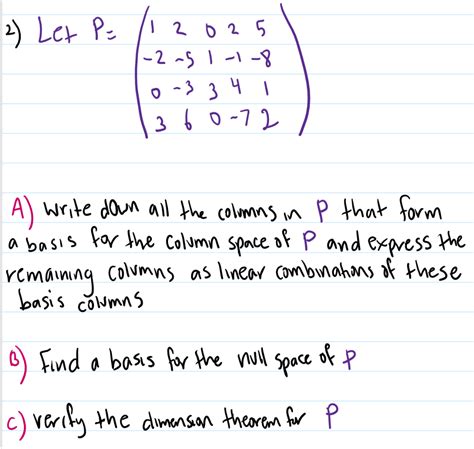 2) Let P= 1 2 0 2 5
-2 -5 1 -1 -8
0 -3 3 4 1
3 6 0 -7 2
A) write down all the columns in P that form
a basis for the column space of P and express the
remaining columns as linear combinations of these
basis columns
B) Find a basis for the null space of P
C) verify the dimension theorem for P